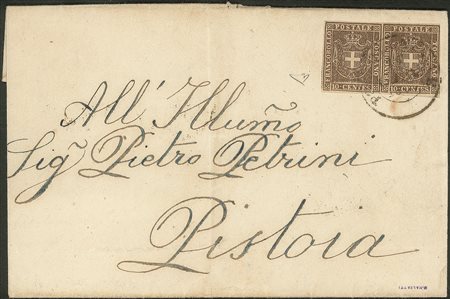 FRANCOBOLLO POSTALE TOSCANO 10 CENTES
FRANCOBOLLO POSTALE 10 CENTES
All' Illumo
Sig Pietro Petrini
Pistoia